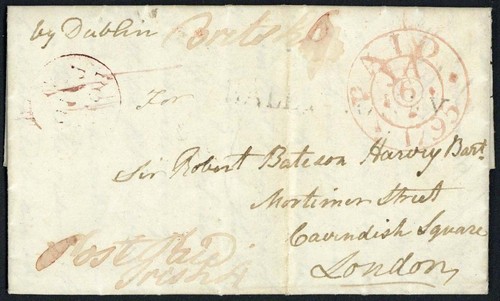 by Dublin
British 6
PAID
6
1795
For
Sir Robert Bateson Harvey Bart.
Mortimer Street
Cavendish Square
London
Post Paid
Irish 4